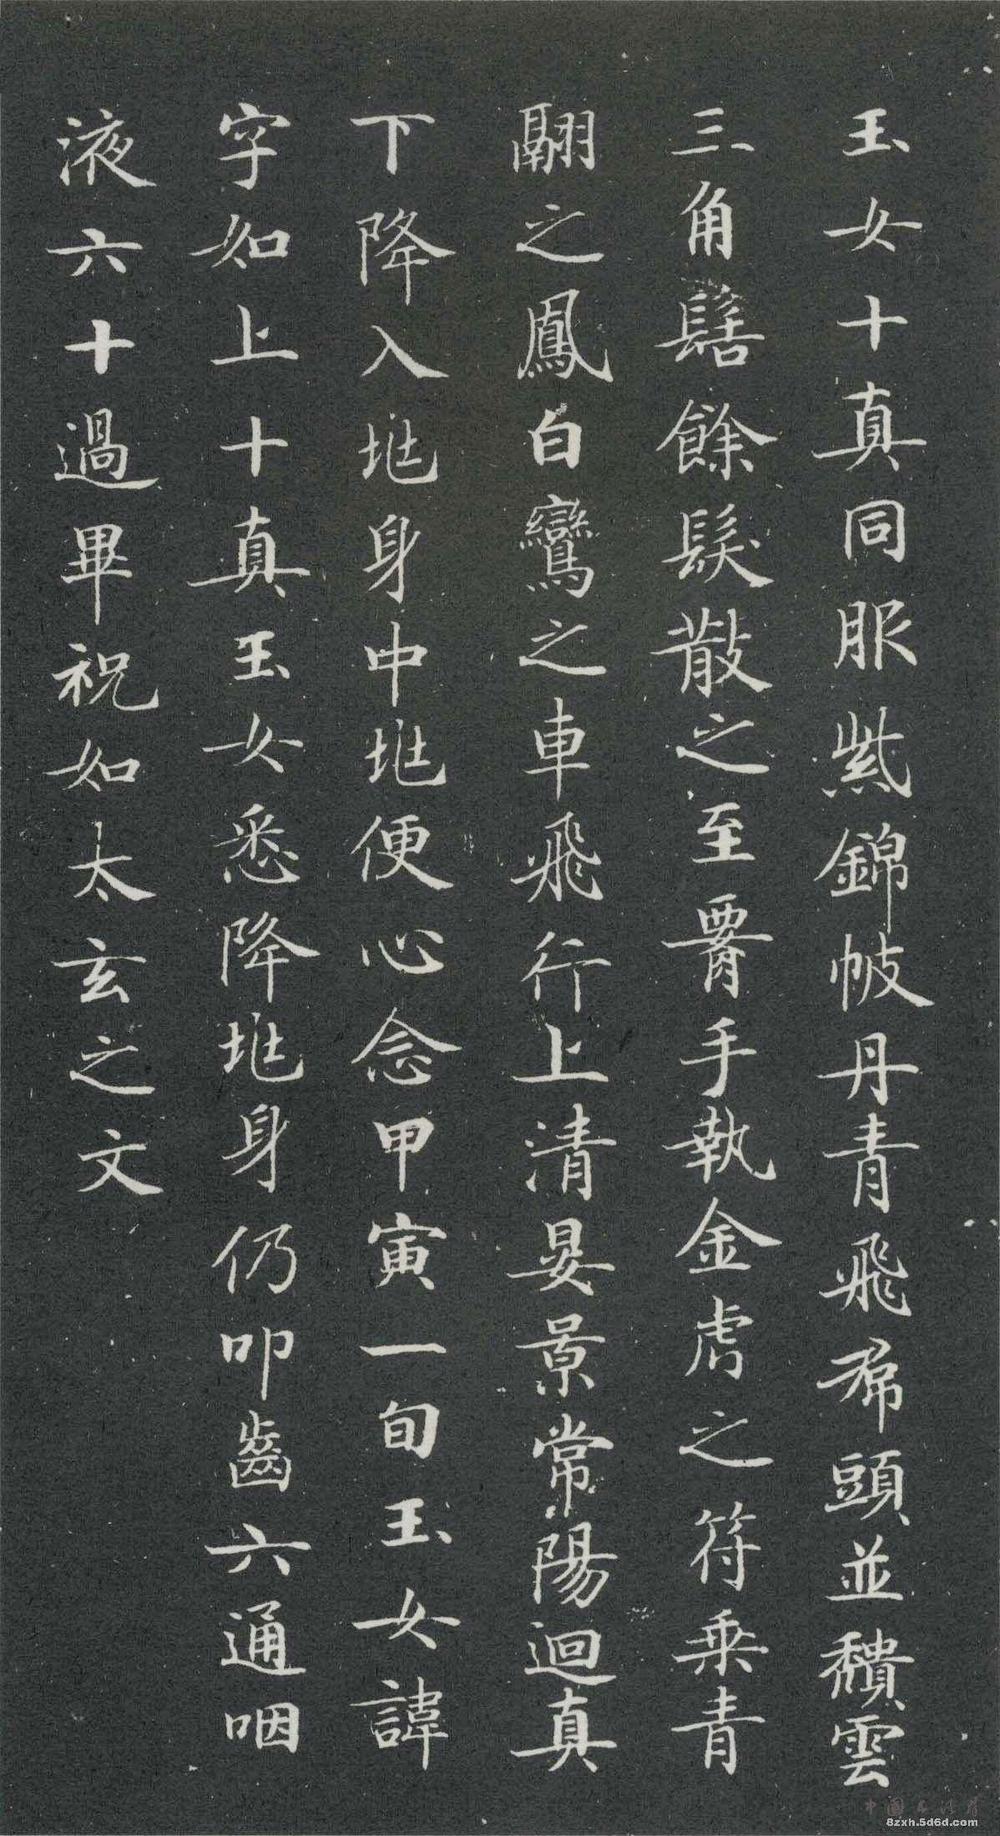 玉女十真同服紫錦帔丹青飛帬頭並穨雲
三角髻餘髮散之至署手執金虎之符乗青
翮之鳳白鸞之車飛行上清晏景常陽迴真
下降入地身中地便心念甲寅一旬玉女諱
字如上十真玉女悉降地身仍叩齒六通咽
液六十過畢祝如太玄之文
8zxh.5d6d.com